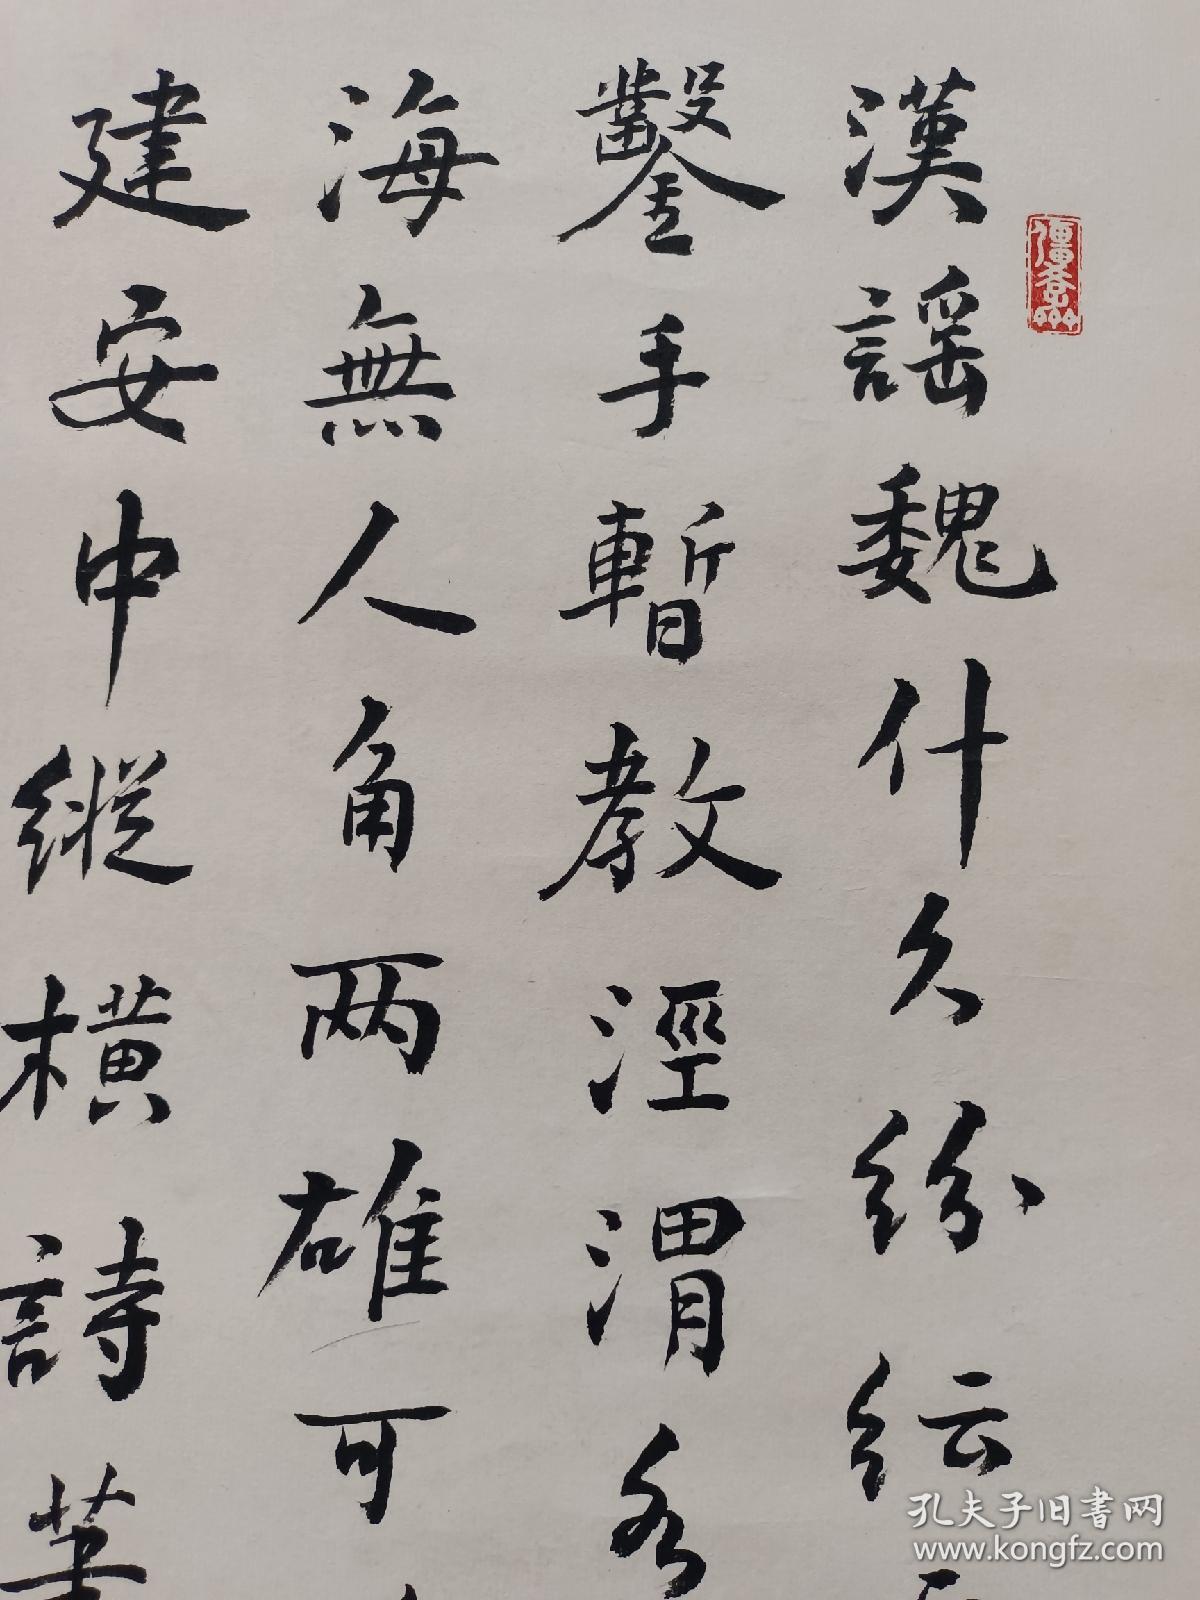 漢謡魏什久紛紜
鑿手暫教涇渭各
海無人角两雄可
建安中縱橫詩筆
孔夫子旧書网
www.kongfz.com